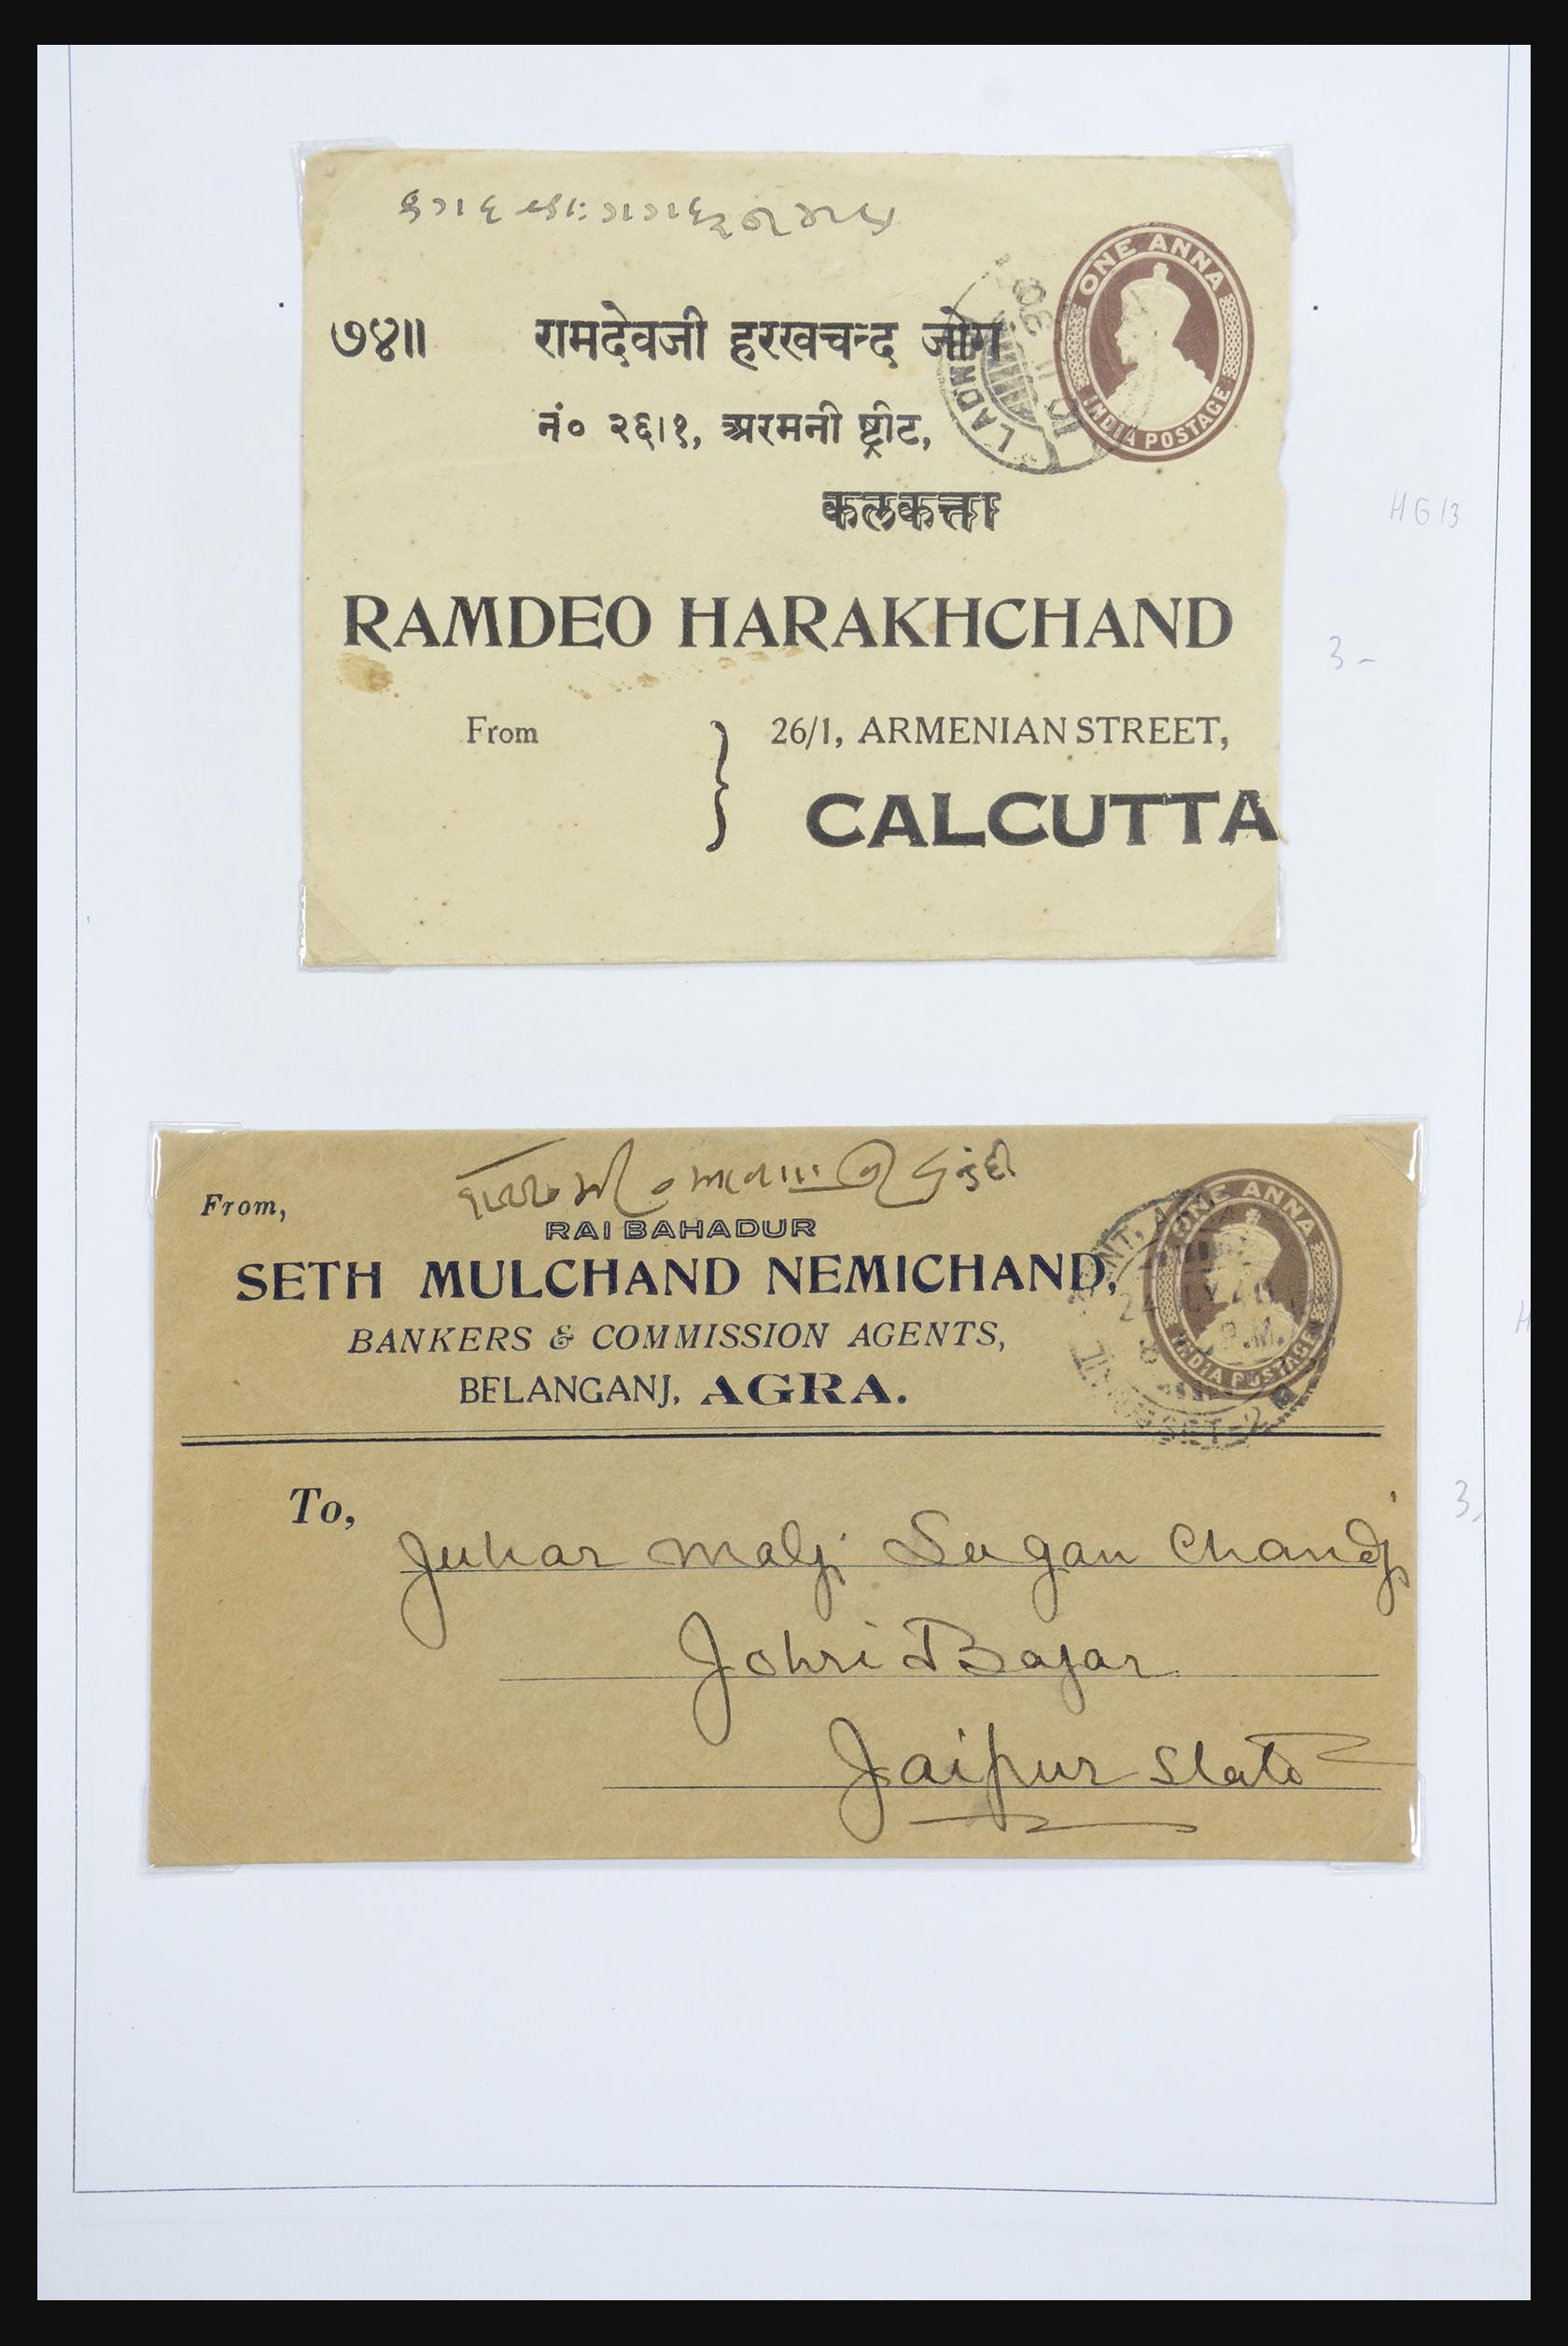 ONE ANNA
INDIA POSTAGE
७४॥ रामदेवजी हरखचन्द जोग
नं० २६।१, अरमनी ष्ट्रीट,
कलकत्ता
HG 13
RAMDEO HARAKHCHAND
3 -
From } 26/1, ARMENIAN STREET,
CALCUTTA
From,
RAI BAHADUR
SETH MULCHAND NEMICHAND,
BANKERS & COMMISSION AGENTS,
BELANGANJ, AGRA.
ONE ANNA
INDIA POSTAGE
To,
Juhar Malji Sugan Chandji
Johri Bajar
Jaipur State